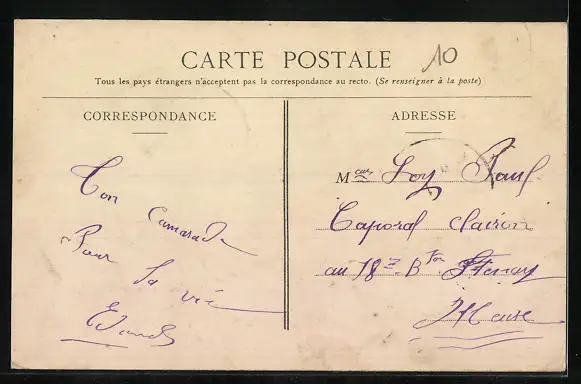 CARTE POSTALE
10
Tous les pays étrangers n'acceptent pas la correspondance au recto. (Se renseigner à la poste)
CORRESPONDANCE
Ton
Camarade
Pour la vie
ADRESSE
M Loy Paul
Caporal clairon
au 18e Bton Stenay
Meuse